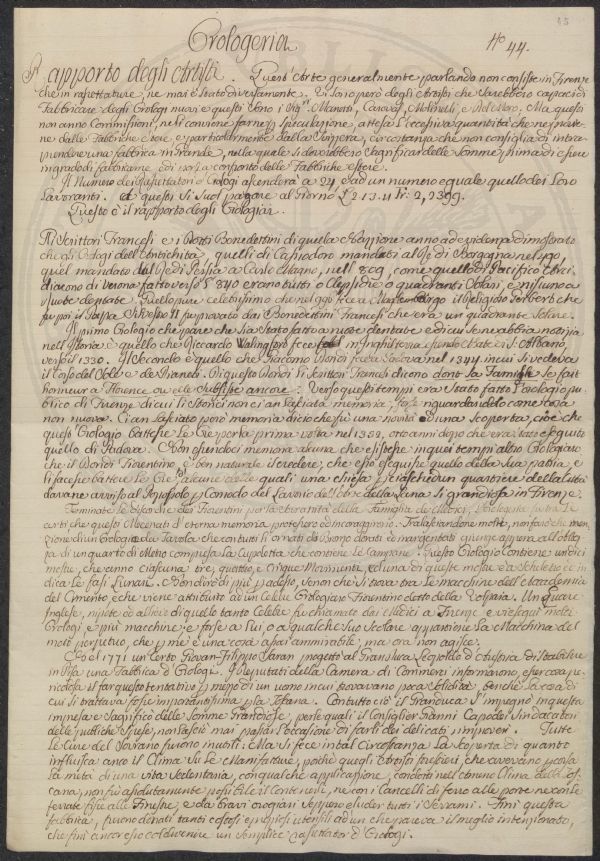 Orologeria
No 44.
Rapporto degli Artisti. Quest'Arte generalmente parlando non consiste in Firenze
che in rassettature, ne mai è stato diversamente. Vi sono però degli Artisti che sarebbero capaci di
Fabbricare degli Orologi nuovi e questi sono i Sigri Manetti, Canovai, Molinelli, e . Ma questi
non anno Commissioni, ne li conviene farne p speculazione, attesa l'eccessiva quantità che ne 
dalle Fabbriche estere, e particolarmente dalla Svizzera, circostanza che non consiglia di intra-
prendere una fabbrica in grande, nella quale si dovrebbero sagrificar delle somme prima di essere
in grado di fabbricarne, così a confronto delle Fabbriche estere.
Il Numero dei Rassettatori d'Orologi ascenderà a 24 ed un numero eguale quello dei Loro
Lavoranti. A questi si suol pagare al Giorno
Questo è il rapporto degli Orologiari.
Gli Scrittori Francesi e i Dotti Benedettini di quela Nazione anno ad evidenza dimostrato
che gli Orologi dell'Antichità quelli di Cassiodoro mandati al Re di Borgogna nel 
quel mandato dal Re di Persia a Carlo Magno, nell'809, come quello di Pacifico Arci-
diacono di Verona fatto verso l'840 erano tutti o Clepsidre o quadranti Solari, e nissuno a
Ruote dentate. Quell'opure celebratissimo che nel 996 fece a Magdemburgo il religioso Gerbert che
fu poi il Papa Silvestro II fu provato dai Benedettini Francesi che era un quadrante Solare.
Il primo Orologio che pare che sia stato fatto a ruote dentate e di cui se ne abbia notizia
nell'Istoria è quello che Riccardo Walingford fece in Inghilterra essendo Abate di S. Albano,
verso il 1330. Il Secondo è quello che Giacomo Dondi fece a Padova nel 1344 in cui si vedeva
il corso del Sole e dei Pianeti. Di questo Dondi gli Scrittori Francesi dicono dont la Famille se fait
honneur a Florence ou elle subsiste ancore. Verso questi tempi era stato fatto l'orologio pu-
blico di Firenze di cui li Storici non ci an lasciata memoria, forse riguardandolo come cosa
non nuova. Ci an lasciato però memoria dicto che fù una novità ed una scoperta, cioè che
quest'Orologio battesse le Ore per la prima volta nel 1352, otto anni dopo che era stato eseguito
quello di Padova. Non essendoci memoria alcuna che esistesse in quei tempi altro Orologiaro
che il Dondi Fiorentino, è ben naturale il credere, che esso eseguisse quello della sua patria, e
li facesse battere le Ore, alcune delle quali una chiesa p ciaschedun quartiere della Città
davano avviso al Popolo p comodo del Lavorio dell'Arte della Lana sì grandiosa in Firenze.
Terminate le discordie dei Fiorentini per la sovranità della Famiglia de Medici, l'Orologeria fu tra le
arti che questi Mecenati d'eterna memoria protessero ed incoraggirono. Tralasciandone molte, non farò che men-
zione di un Orologio da Tavola che con tutti li ornati di Bronzo dorati ed inargentati giunge appena all'altez-
za di un quarto di Metro compresa la Cupoletta che contiene le Campane. Questo Orologio contiene undici
mostre, che anno ciascuna tre, quattro, e cinque Movimenti, ed una di queste mostre è a scheletro ed in-
dica le fasi Lunari. Non dirò di più p adesso, se non che si trova tra le macchine dell'Accademia
del Cimento e che viene attribuito ad un Celebre Orologiaro Fiorentino detto della Volpaia. Un 
Inglese, nipote ed allievo di quello tanto Celebre fu chiamato dai Medici a Firenze e vi eseguì molti
Orologi e più macchine: e forse a Lui, o a qualche suo Scolare appartiene la Macchina del
moto perpetuo, che p me è una cosa assai ammirabile, ma ora non agisce.
Nel 1771 un certo Giovan-Filippo Saran progettò al Granduca Leopoldo d'Austria di stabilire
in Pisa una Fabbrica d'Orologi. I Deputati della Camera di Commercio informarono, esser cosa pe-
ricolosa il far questo tentativo p mezzo di un uomo in cui trovavano poca solidità, benchè la cosa di
cui si trattava fosse importantissima p la Toscana. Contutto ciò il Granduca s'impegnò in questa
impresa e sagrificò delle somme Grandiose, per le quali il Consiglier Gianni Capo dei Sindacatori
delle pubbliche spese, non lasciò mai passar l'occasione di farli dei delicati improveri. Tutte
le Cure del Sovrano furono inutili: Ma si fece in tal Circostanza la scoperta di quanto
influisca anco il Clima sù le Manifatture, poichè quegli Artisti stranieri che avevano 
la metà di una vita sedentaria, con qualche applicazione, condotti nell'ameno Clima della Tos-
cana, non fù assolutamente possibile il contenerli, ne con i Cancelli di ferro alle porte ne con le
ferrate fisse alle Finestre, e da bravi orogiari seppero eluder tutti i serrami. Finì questa
fabbrica, furono donati tanti costosi e preziosi utensili ad un che pareva il meglio intenzionato,
che finì ancor esso col divenire un semplice rassettator d'Orologi.